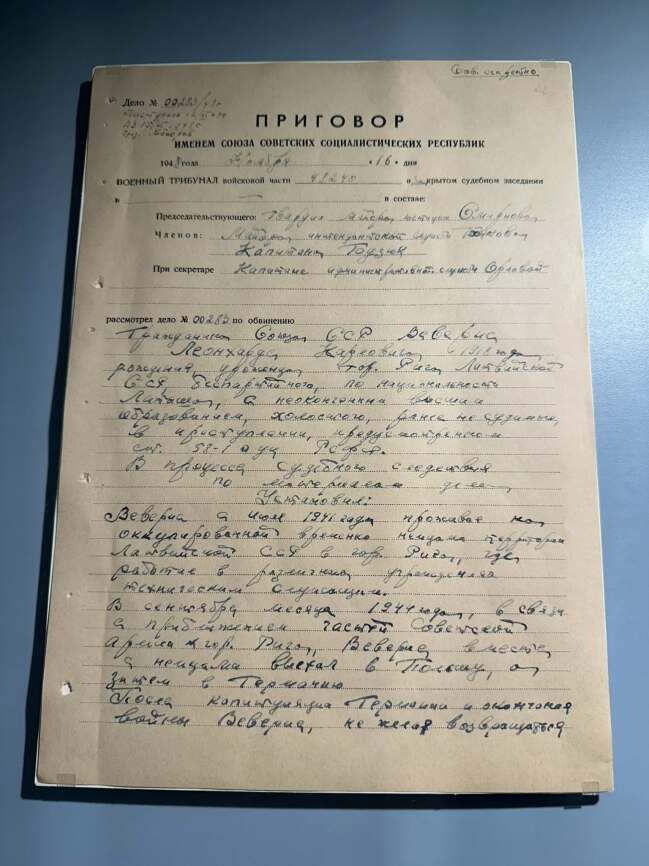 Сов. секретно
Дело № 00283/48г
ПРИГОВОР
ИМЕНЕМ СОЮЗА СОВЕТСКИХ СОЦИАЛИСТИЧЕСКИХ РЕСПУБЛИК
1948 года Ноября „16" дня
ВОЕННЫЙ ТРИБУНАЛ войсковой части 48240 в закрытом судебном заседании
в в составе:
Председательствующего: Гвардии майора юстиции Смирнова
Членов: Майора интендантской службы
Капитана
При секретаре Капитане административной службы Орловой
рассмотрел дело № 00283 по обвинению
Гражданина Союза ССР Веверис
Леонхарда Карловича, 1918 года
рождения, уроженца гор. Рига Латвийской
ССР, беспартийного, по национальности
латыша, с неоконченным высшим
образованием, холостого, ранее не судимого,
в преступлении, предусмотренном
ст. 58-1 а УК РСФСР.
В процессе судебного следствия
по материалам дела
Установил:
Веверис с июля 1941 года, проживая на
оккупированной временно немцами территории
Латвийской ССР в гор. Риге, где
работал в различных учреждениях
техническим служащим.
В сентябре месяце 1944 года, в связи
с приближением частей Советской
Армии к гор. Риге, Веверис вместе
с немцами выехал в Польшу, а
затем в Германию
После капитуляции Германии и окончания
войны Веверис, не желая возвращаться